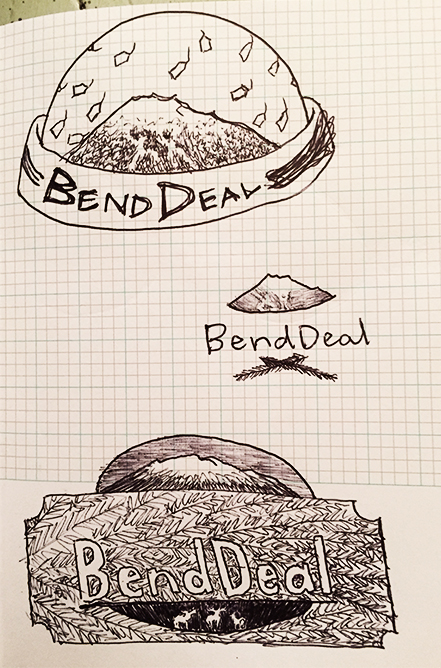 BEND DEAL
BendDeal
BendDeal